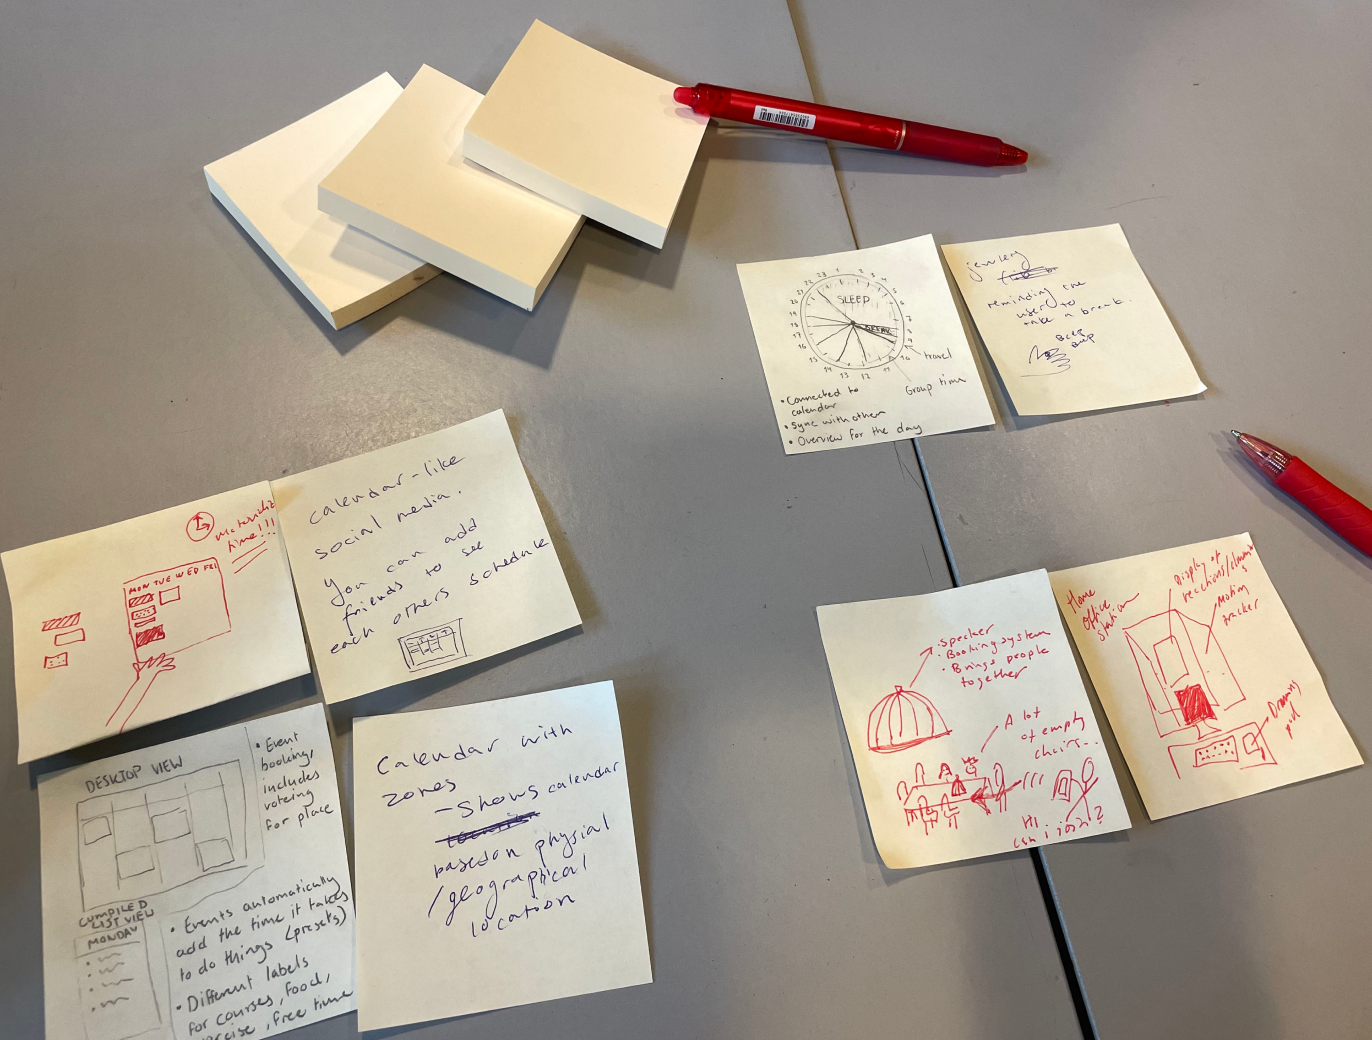 SLEEP
BREAK
travel
Group time
• Connected to
calendar
• Sync with others
• Overview for the day
jewlery
reminding the
user to
take a break.
Beep
Beep
time!!!
MON TUE WED FRI
calendar-like
social media.
You can add
friends to see
each others schedule
DESKTOP VIEW
• Event
booking,
includes
voteing
for place
COMPILED
LIST VIEW
MONDAY
• Events automatically
add the time it takes
to do things (presets)
• Different labels
for courses, food,
free time
Calendar with
zones
- Shows calendar
based on physial
/geographical
location
• Speker
• Booking system
• Brings people
together
A lot
of empty
chairs...
Hi
can i join?
Home
office
station
Display of
reactions/
Motion
tracker
Drawing
pad